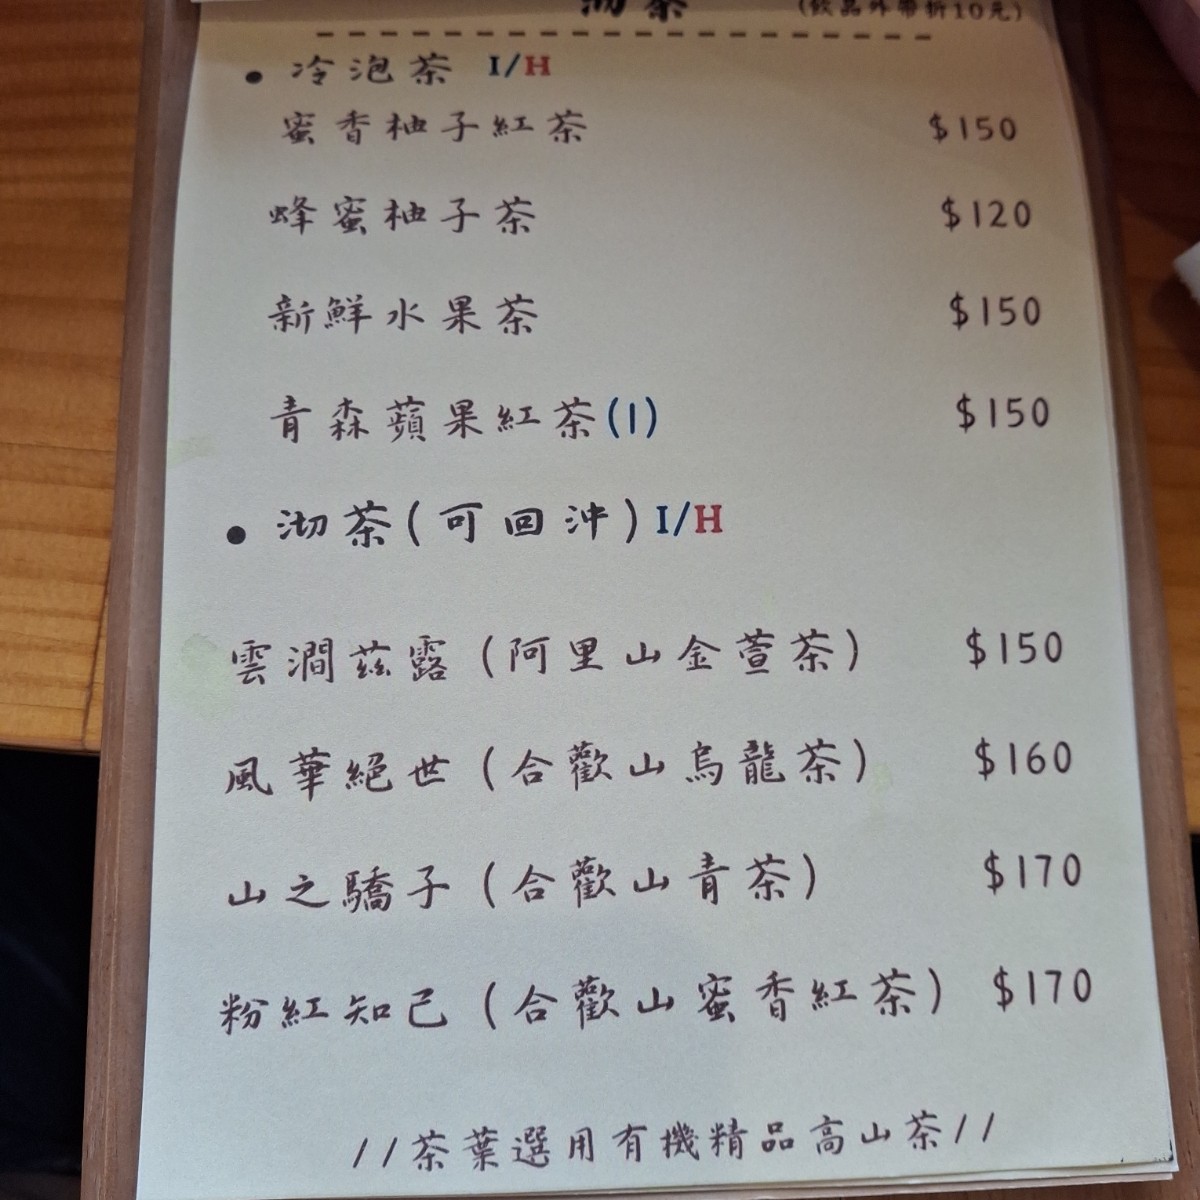 沏茶 (飲品外帶折10元)
• 冷泡茶 I/H
蜜香柚子紅茶 $150
蜂蜜柚子茶 $120
新鮮水果茶 $150
青森蘋果紅茶(I) $150
• 沏茶(可回沖) I/H
雲澗茲露(阿里山金萱茶) $150
風華絕世(合歡山烏龍茶) $160
山之驕子(合歡山青茶) $170
粉紅知己(合歡山蜜香紅茶) $170
//茶葉選用有機精品高山茶//